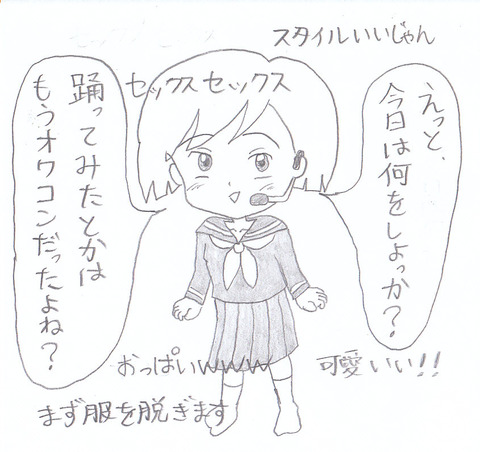 スタイルいいじゃん
セックスセックス
えっと、
今日は何をしよっか?
踊ってみたとかは
もうオワコンだったよね?
おっぱいwww
可愛いい!!
まず服を脱ぎます